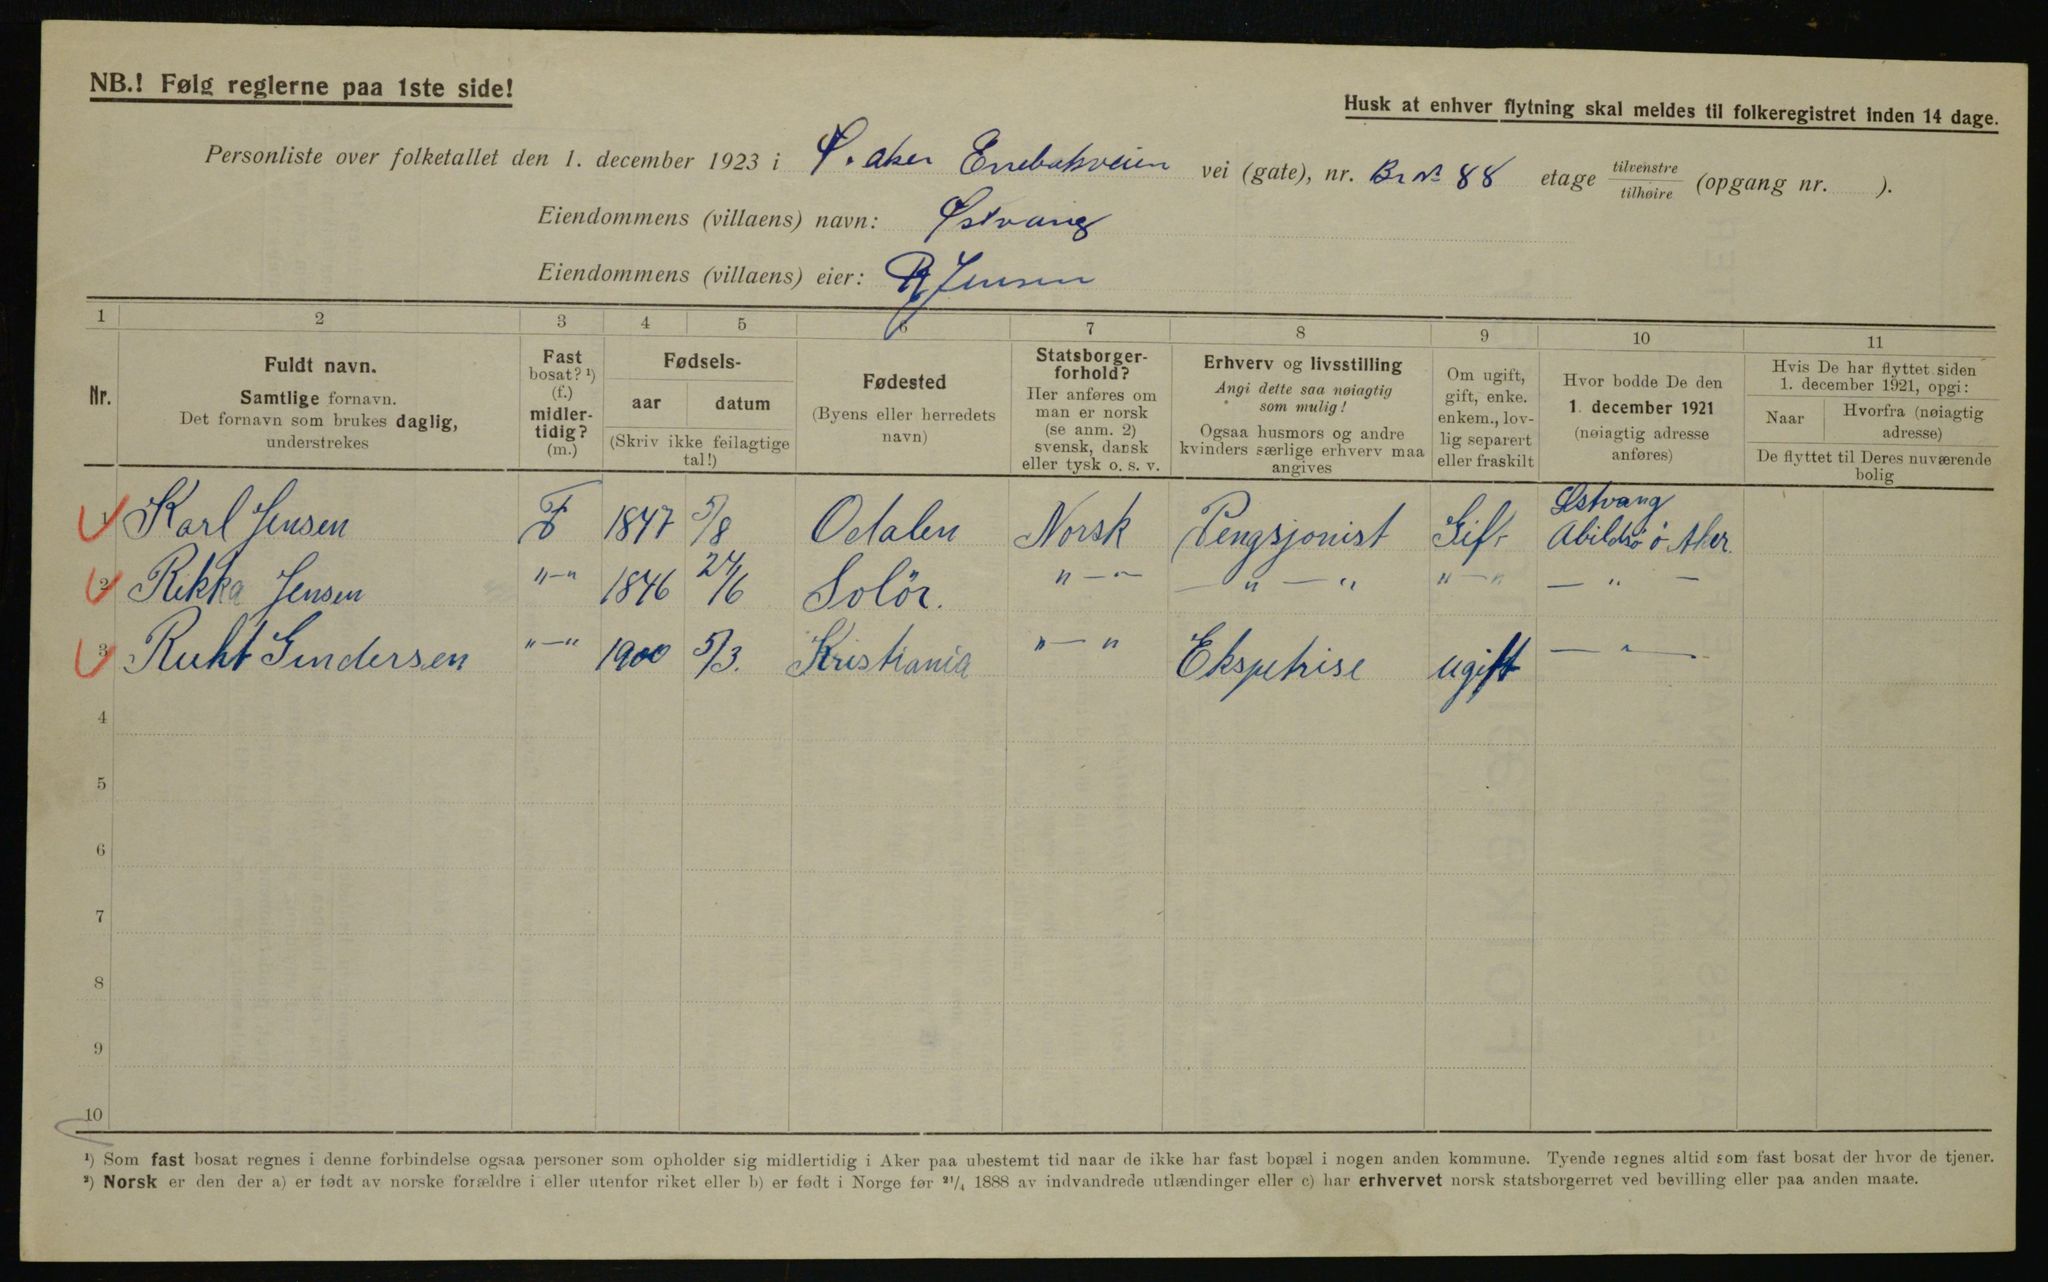 NB.! Følg reglerne paa 1ste side!
Husk at enhver flytning skal meldes til folkeregistret inden 14 dage.
Personliste over folketallet den 1. december 1923 i Ø. aker Enebakveien vei (gate), nr. Br № 88 etage tilvenstre / tilhøire (opgang nr. ).
Eiendommens (villaens) navn: Østvang
Eiendommens (villaens) eier: Jensen
1 2 3 4 5 6 7 8 9 10 11
Nr.
Fuldt navn.
Samtlige fornavn.
Det fornavn som brukes daglig,
understrekes
Fast
bosat? ¹)
(f.)
midler-
tidig?
(m.)
Fødsels-
aar datum
(Skriv ikke feilagtige
tal!)
Fødested
(Byens eller herredets
navn)
Statsborger-
forhold?
Her anføres om
man er norsk
(se anm. 2)
svensk, dansk
eller tysk o. s. v.
Erhverv og livsstilling
Angi dette saa nøiagtig
som mulig!
Ogsaa husmors og andre
kvinders særlige erhverv maa
angives
Om ugift,
gift, enke.
enkem., lov-
lig separert
eller fraskilt
Hvor bodde De den
1. december 1921
(nøiagtig adresse
anføres)
Hvis De har flyttet siden
1. december 1921, opgi:
Naar Hvorfra (nøiagtig
adresse)
De flyttet til Deres nuværende
bolig
1 Karl Jensen F 1847 5/8 Odalen Norsk Pengsjonist Gift Østvang
Abildsö ö Aker.
2 Rikka Jensen "—" 1846 24/6 Solör. "—— — " — " "—" — " —
3 Ruht Gundersen "—" 1900 5/3. Kristiania "— " Ekspetrise ugift — " —
4
5
6
7
8
9
10
¹) Som fast bosat regnes i denne forbindelse ogsaa personer som opholder sig midlertidig i Aker paa ubestemt tid naar de ikke har fast bopæl i nogen anden kommune. Tyende regnes altid som fast bosat der hvor de tjener.
²) Norsk er den der a) er født av norske forældre i eller utenfor riket eller b) er født i Norge før ²¹/₄ 1888 av indvandrede utlændinger eller c) har erhvervet norsk statsborgerret ved bevilling eller paa anden maate.